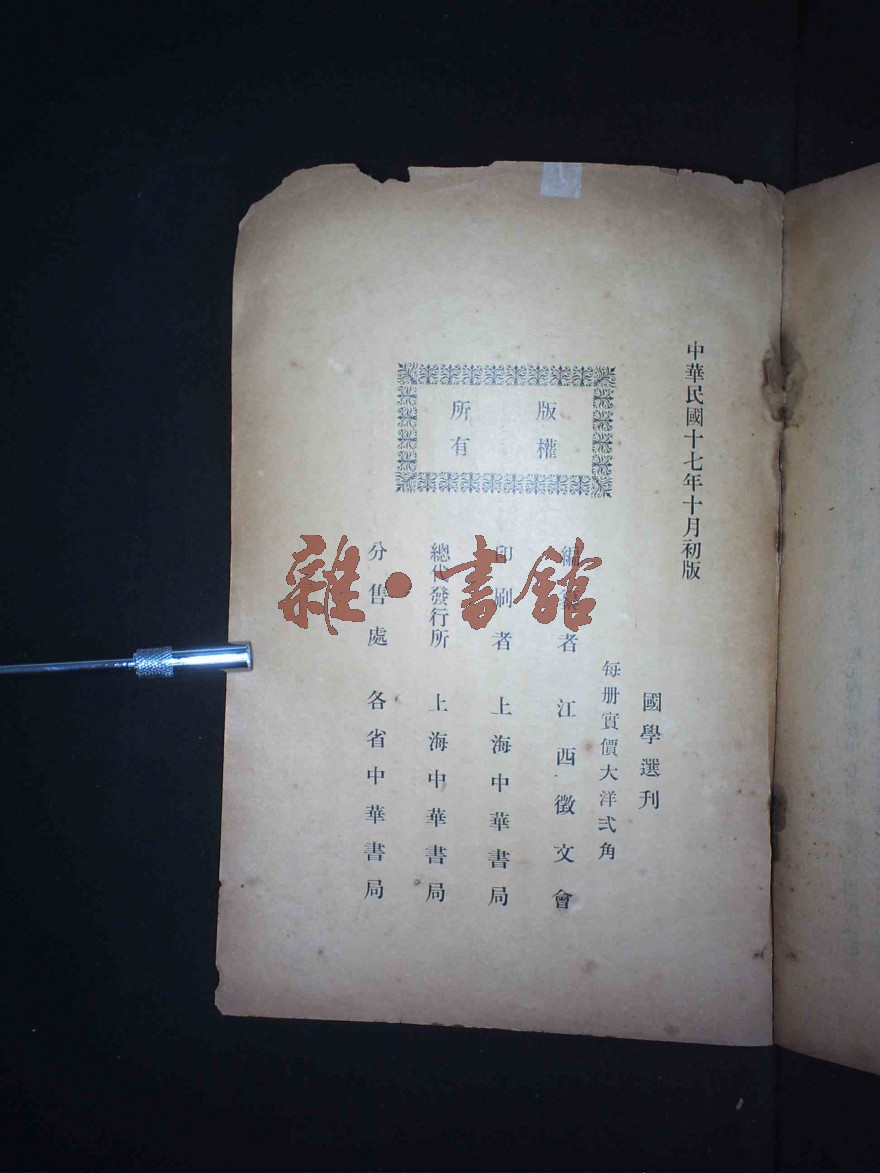 中華民國十七年十月初版
國學選刊
每册實價大洋弍角
版權
所有
編輯者 江西徵文會
印刷者 上海中華書局
總代發行所 上海中華書局
分售處 各省中華書局
雜·書館